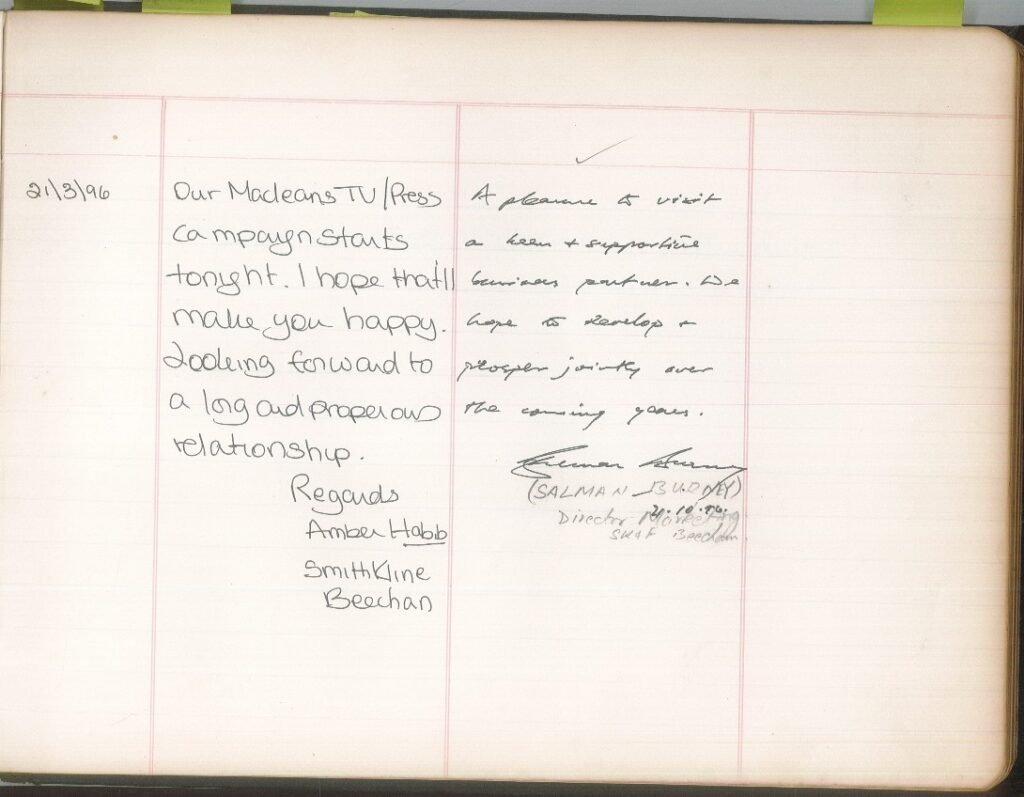 21/3/96
Our Macleans TV/Press
campaign starts
tonight. I hope that'll
make you happy.
Looking forward to
a long and properous
relationship.
Regards
Amber Habib
SmithKline
Beechan
A pleasure to visit
a keen + supportive
business partner. We
hope to develop +
prosper jointly over
the coming years.
(SALMAN BURNEY)
Director Marketing
SK&F Beecham